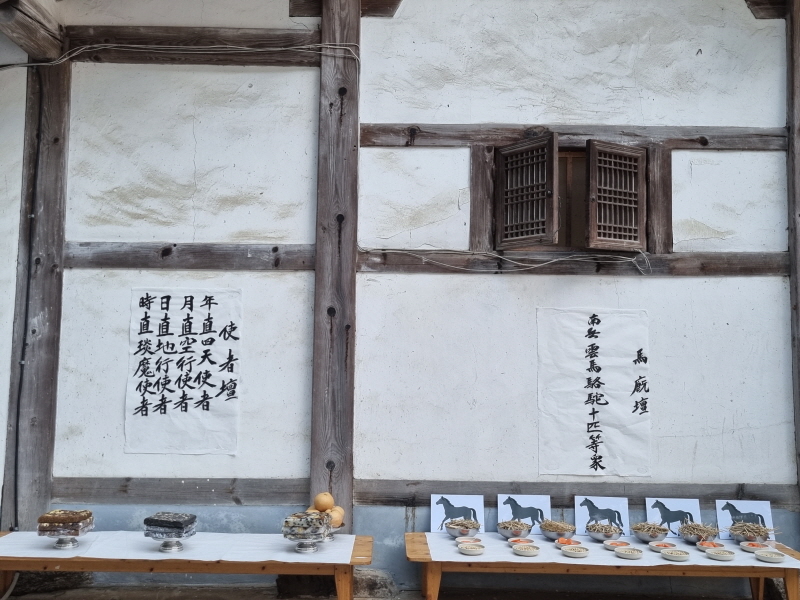 使者壇
年直四天使者
月直空行使者
日直地行使者
時直琰魔使者
馬廐壇
南岳雲馬駱駝十匹等衆